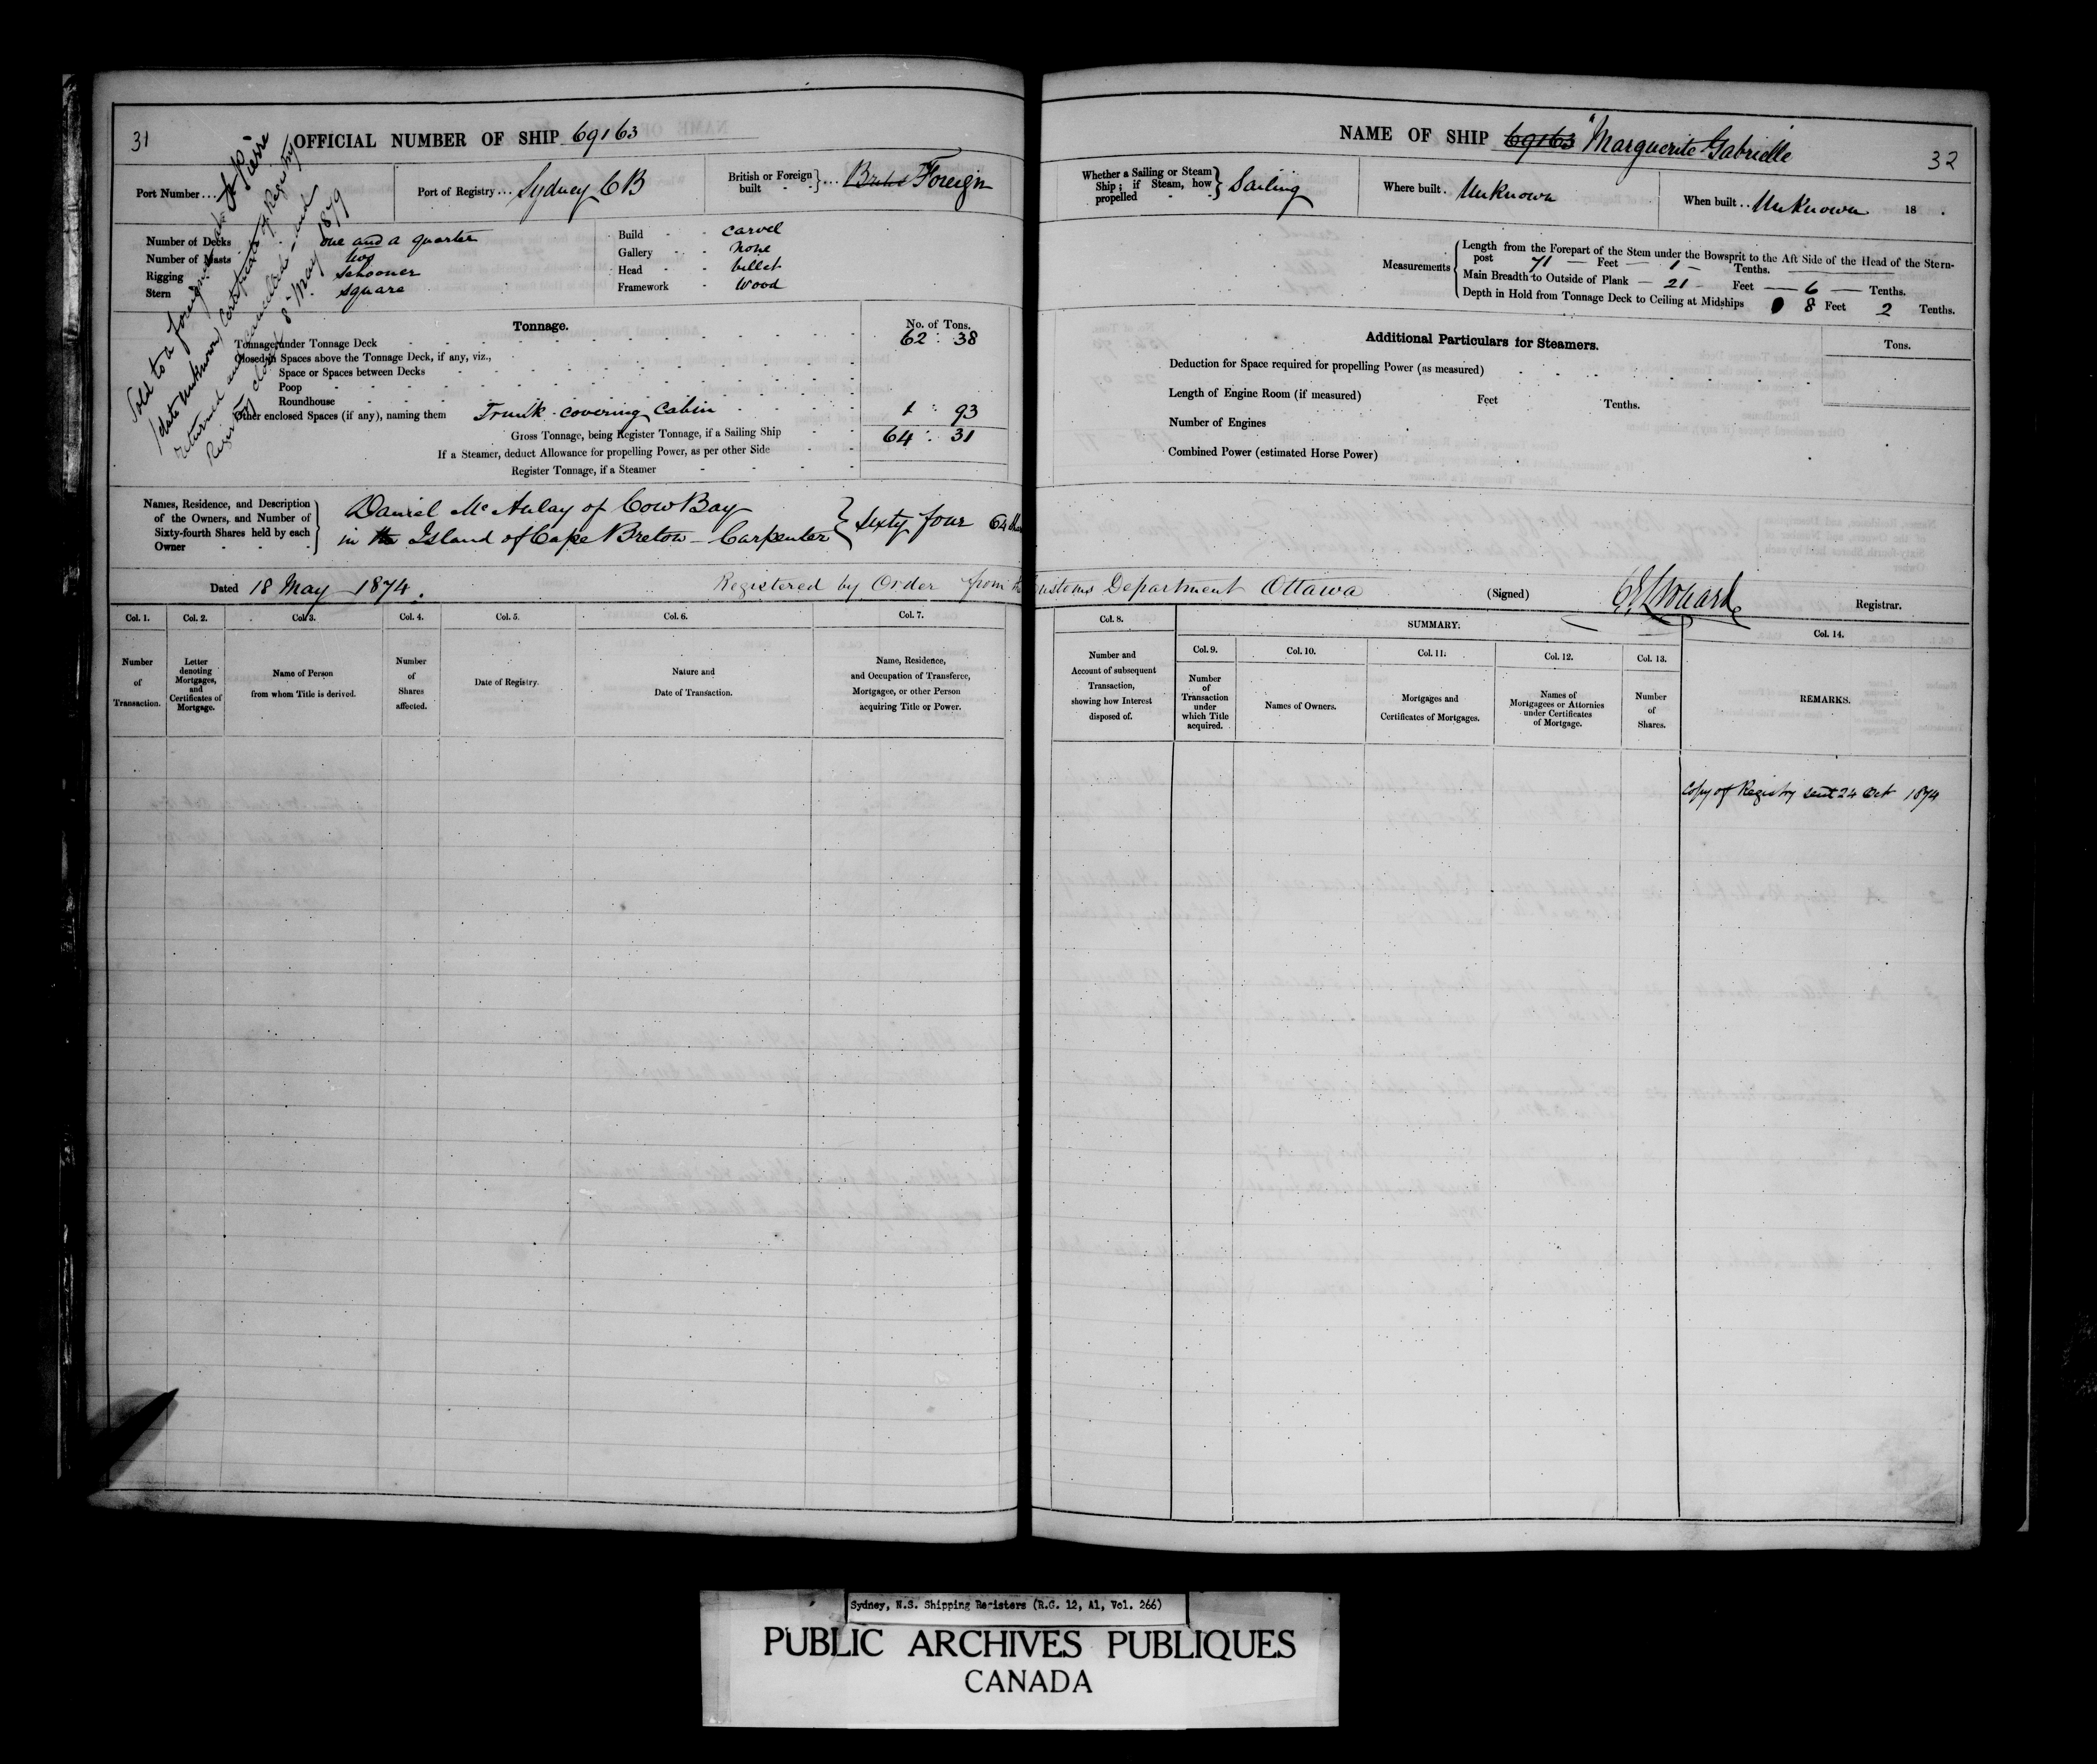 31
OFFICIAL NUMBER OF SHIP 69163
Port Number...
Port of Registry... Sydney C B
British or Foreign built } ... British Foreign
Sold to a foreigner at St Pierre
(date unknown) Certificate of Registry
returned and cancelled and
Registry closed 8 May 1879
Number of Decks one and a quarter
Number of Masts two
Rigging Schooner
Stern square
Build - - carvel
Gallery - - none
Head - - billet
Framework - wood
Tonnage.
No. of Tons.
Tonnage under Tonnage Deck 62 : 38
Closed-in Spaces above the Tonnage Deck, if any, viz.,
Space or Spaces between Decks
Poop
Roundhouse
Other enclosed Spaces (if any), naming them Trunk covering Cabin 1 : 93
Gross Tonnage, being Register Tonnage, if a Sailing Ship 64 : 31
If a Steamer, deduct Allowance for propelling Power, as per other Side
Register Tonnage, if a Steamer
Names, Residence, and Description of the Owners, and Number of Sixty-fourth Shares held by each Owner
Daniel McAulay of Cow Bay
in the Island of Cape Breton - Carpenter } Sixty four 64
Dated 18 May 1874.
Registered by Order from
Col. 1.
Number of Transaction.
Col. 2.
Letter denoting Mortgages, and Certificates of Mortgage.
Col. 3.
Name of Person from whom Title is derived.
Col. 4.
Number of Shares affected.
Col. 5.
Date of Registry.
Col. 6.
Nature and Date of Transaction.
Col. 7.
Name, Residence, and Occupation of Transferee, Mortgagee, or other Person acquiring Title or Power.
NAME OF SHIP 69163 "Marguerite Gabrielle
32
Whether a Sailing or Steam Ship; if Steam, how propelled } Sailing
Where built. Unknown
When built.. Unknown 18 .
Measurements
Length from the Forepart of the Stem under the Bowsprit to the Aft Side of the Head of the Stern-
post 71 — Feet — 1 — Tenths.
Main Breadth to Outside of Plank — 21 — Feet — 6 — Tenths.
Depth in Hold from Tonnage Deck to Ceiling at Midships 8 Feet 2 Tenths.
Additional Particulars for Steamers.
Tons.
Deduction for Space required for propelling Power (as measured)
Length of Engine Room (if measured) Feet Tenths.
Number of Engines
Combined Power (estimated Horse Power)
Customs Department Ottawa
(Signed)
Registrar.
Col. 8.
Number and Account of subsequent Transaction, showing how Interest disposed of.
SUMMARY.
Col. 9.
Number of Transaction under which Title acquired.
Col. 10.
Names of Owners.
Col. 11.
Mortgages and Certificates of Mortgages.
Col. 12.
Names of Mortgagees or Attornies under Certificates of Mortgage.
Col. 13.
Number of Shares.
Col. 14.
REMARKS.
Copy of Registry sent 24 Oct 1874
Sydney, N.S. Shipping Registers (R.G. 12, A1, Vol. 266)
PUBLIC ARCHIVES PUBLIQUES
CANADA